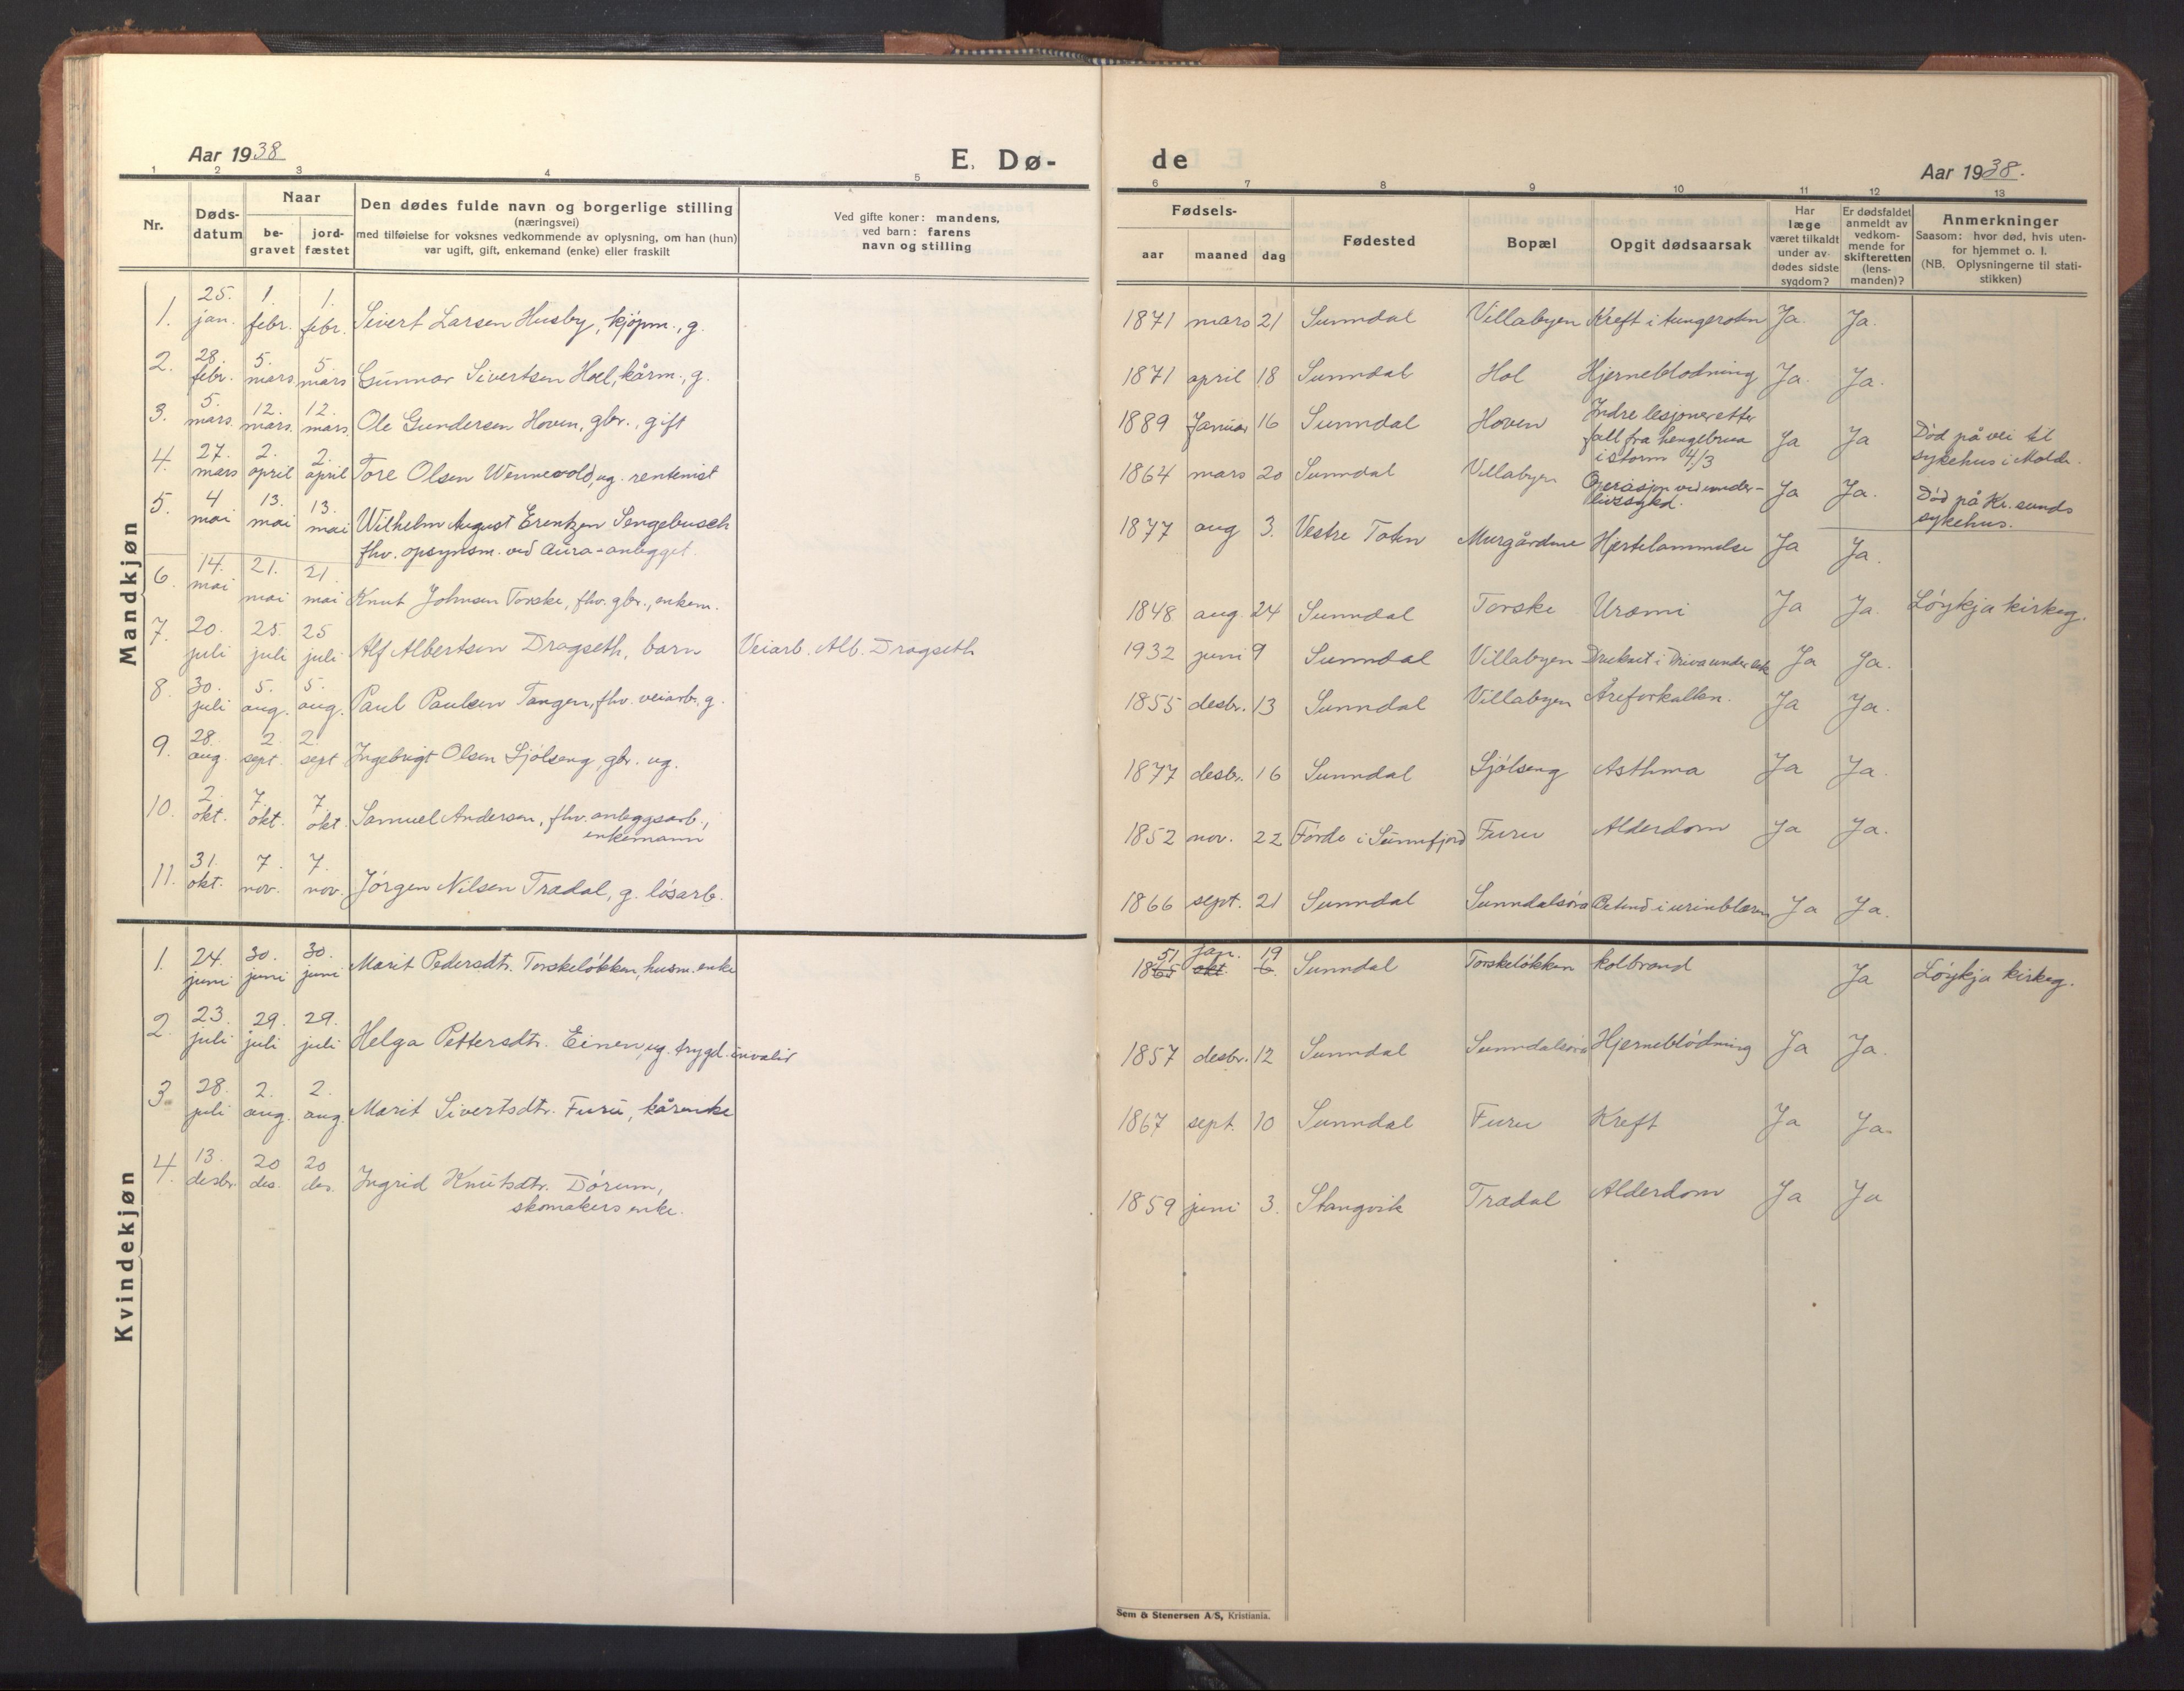 Aar 1938
E. Dø-
1 2 3 4 5
Nr.
Døds-
datum
Naar
be-
gravet
jord-
fæstet
Den dødes fulde navn og borgerlige stilling
(næringsvei)
med tilføielse for voksnes vedkommende av oplysning, om han (hun)
var ugift, gift, enkemand (enke) eller fraskilt
Ved gifte koner: mandens,
ved barn: farens
navn og stilling
Mandkjøn
1. 25. jan. 1. febr. 1. febr. Sivert Larsen Husby, kjøpm., g.
2. 28. febr. 5. mars 5 mars Gunnar Sivertsen Hoel, kårm., g.
3. 5. mars. 12. mars. 12. mars. Ole Gundersen Hoven, gbr., gift
4. 27. mars 2. april 2. april Tore Olsen Wennevold, ug. rentenist
5. 4 mai 13. mai 13. mai Wilhelm August Erentzen Sengebusch
fhv. opsynsm. ved Aura-anlegget.
6. 14. mai 21. mai 21. mai Knut Johnsen Torske, fhv. gbr., enkem.
7. 20. juli 25. juli 25 juli Alf Albertsen Dragseth, barn Veiarb. Alb. Dragseth
8. 30. juli 5. aug. 5. aug. Paul Paulsen Tangen, fhv. veiarb., g.
9. 28. aug. 2. sept. 2. sept Ingebrigt Olsen Sjölseng, gbr. ug.
10. 2. okt. 7. okt. 7. okt. Samuel Andersen, fhv. anleggsarb.,
enkemann
11. 31. okt. 7. nov. 7. nov. Jörgen Nilsen Trædal, g. lösarb.
Kvindekjøn
1. 24. juni 30. juni 30. juni Marit Pedersdtr. Torskelökken, husm.enke
2. 23. juli 29. juli 29. juli Helga Pettersdtr. Einen, ug. trygd. invalid
3. 28. juli 2. aug. 2. aug. Marit Sivertsdtr. Furu, kårenke
4. 13. desbr. 20 des. 20 des. Ingrid Knutsdtr. Dörum,
skomakers enke.
de
Aar 1938.
6 7 8 9 10 11 12 13
Fødsels-
aar maaned dag
Fødested
Bopæl
Opgit dødsaarsak
Har
læge
været tilkaldt
under av-
dødes sidste
sygdom?
Er dødsfaldet
anmeldt av
vedkom-
mende for
skifteretten
(lens-
manden)?
Anmerkninger
Saasom: hvor død, hvis uten-
for hjemmet o. l.
(NB. Oplysningerne til stati-
stikken)
1871 mars 21 Sunndal Villabyen Kreft i tungeroten Ja. Ja.
1871 april 18 Sunndal Hol Hjerneblodning Ja. Ja.
1889 Januar 16 Sunndal Hoven Indre lesjoner etter
fall fra hengebrua
i storm 4/3 Ja Ja Død på vei til
sykehus i Molde.
1864 mars 20 Sunndal Villabyen Operasjon ved under-
livssykd. Ja Ja. Död på Kr. sunds
sykehus.
1877 aug 3. Vestre Toten Murgårdene Hjertelammelse Ja Ja.
1848 aug. 24 Sunndal Torske Uræmi Ja Ja. Löykja kirkeg.
1932 juni 9 Sunndal Villabyen Druknet i Driva under lek Ja Ja.
1855 desbr. 13 Sunndal Villabyen Åreforkalkn. Ja Ja.
1877 desbr. 16 Sunndal Sjölseng Asthma Ja Ja.
1852 nov. 22 Förde i Sunnfjord Furu Alderdom Ja Ja.
1866 sept. 21 Sunndal Sunndalsöra Betend i urinblæren Ja Ja.
51 jan. 19
1865 okt 6. Sunndal Torskelökken kolbrand Ja Löykja kirkeg.
1857 desbr. 12 Sunndal Sunndalsöra Hjerneblödning Ja Ja.
1867 sept. 10 Sunndal Furu Kreft Ja Ja.
1859 juni 3. Stangvik Trædal Alderdom Ja Ja
Sem & Stenersen A/S, Kristiania.